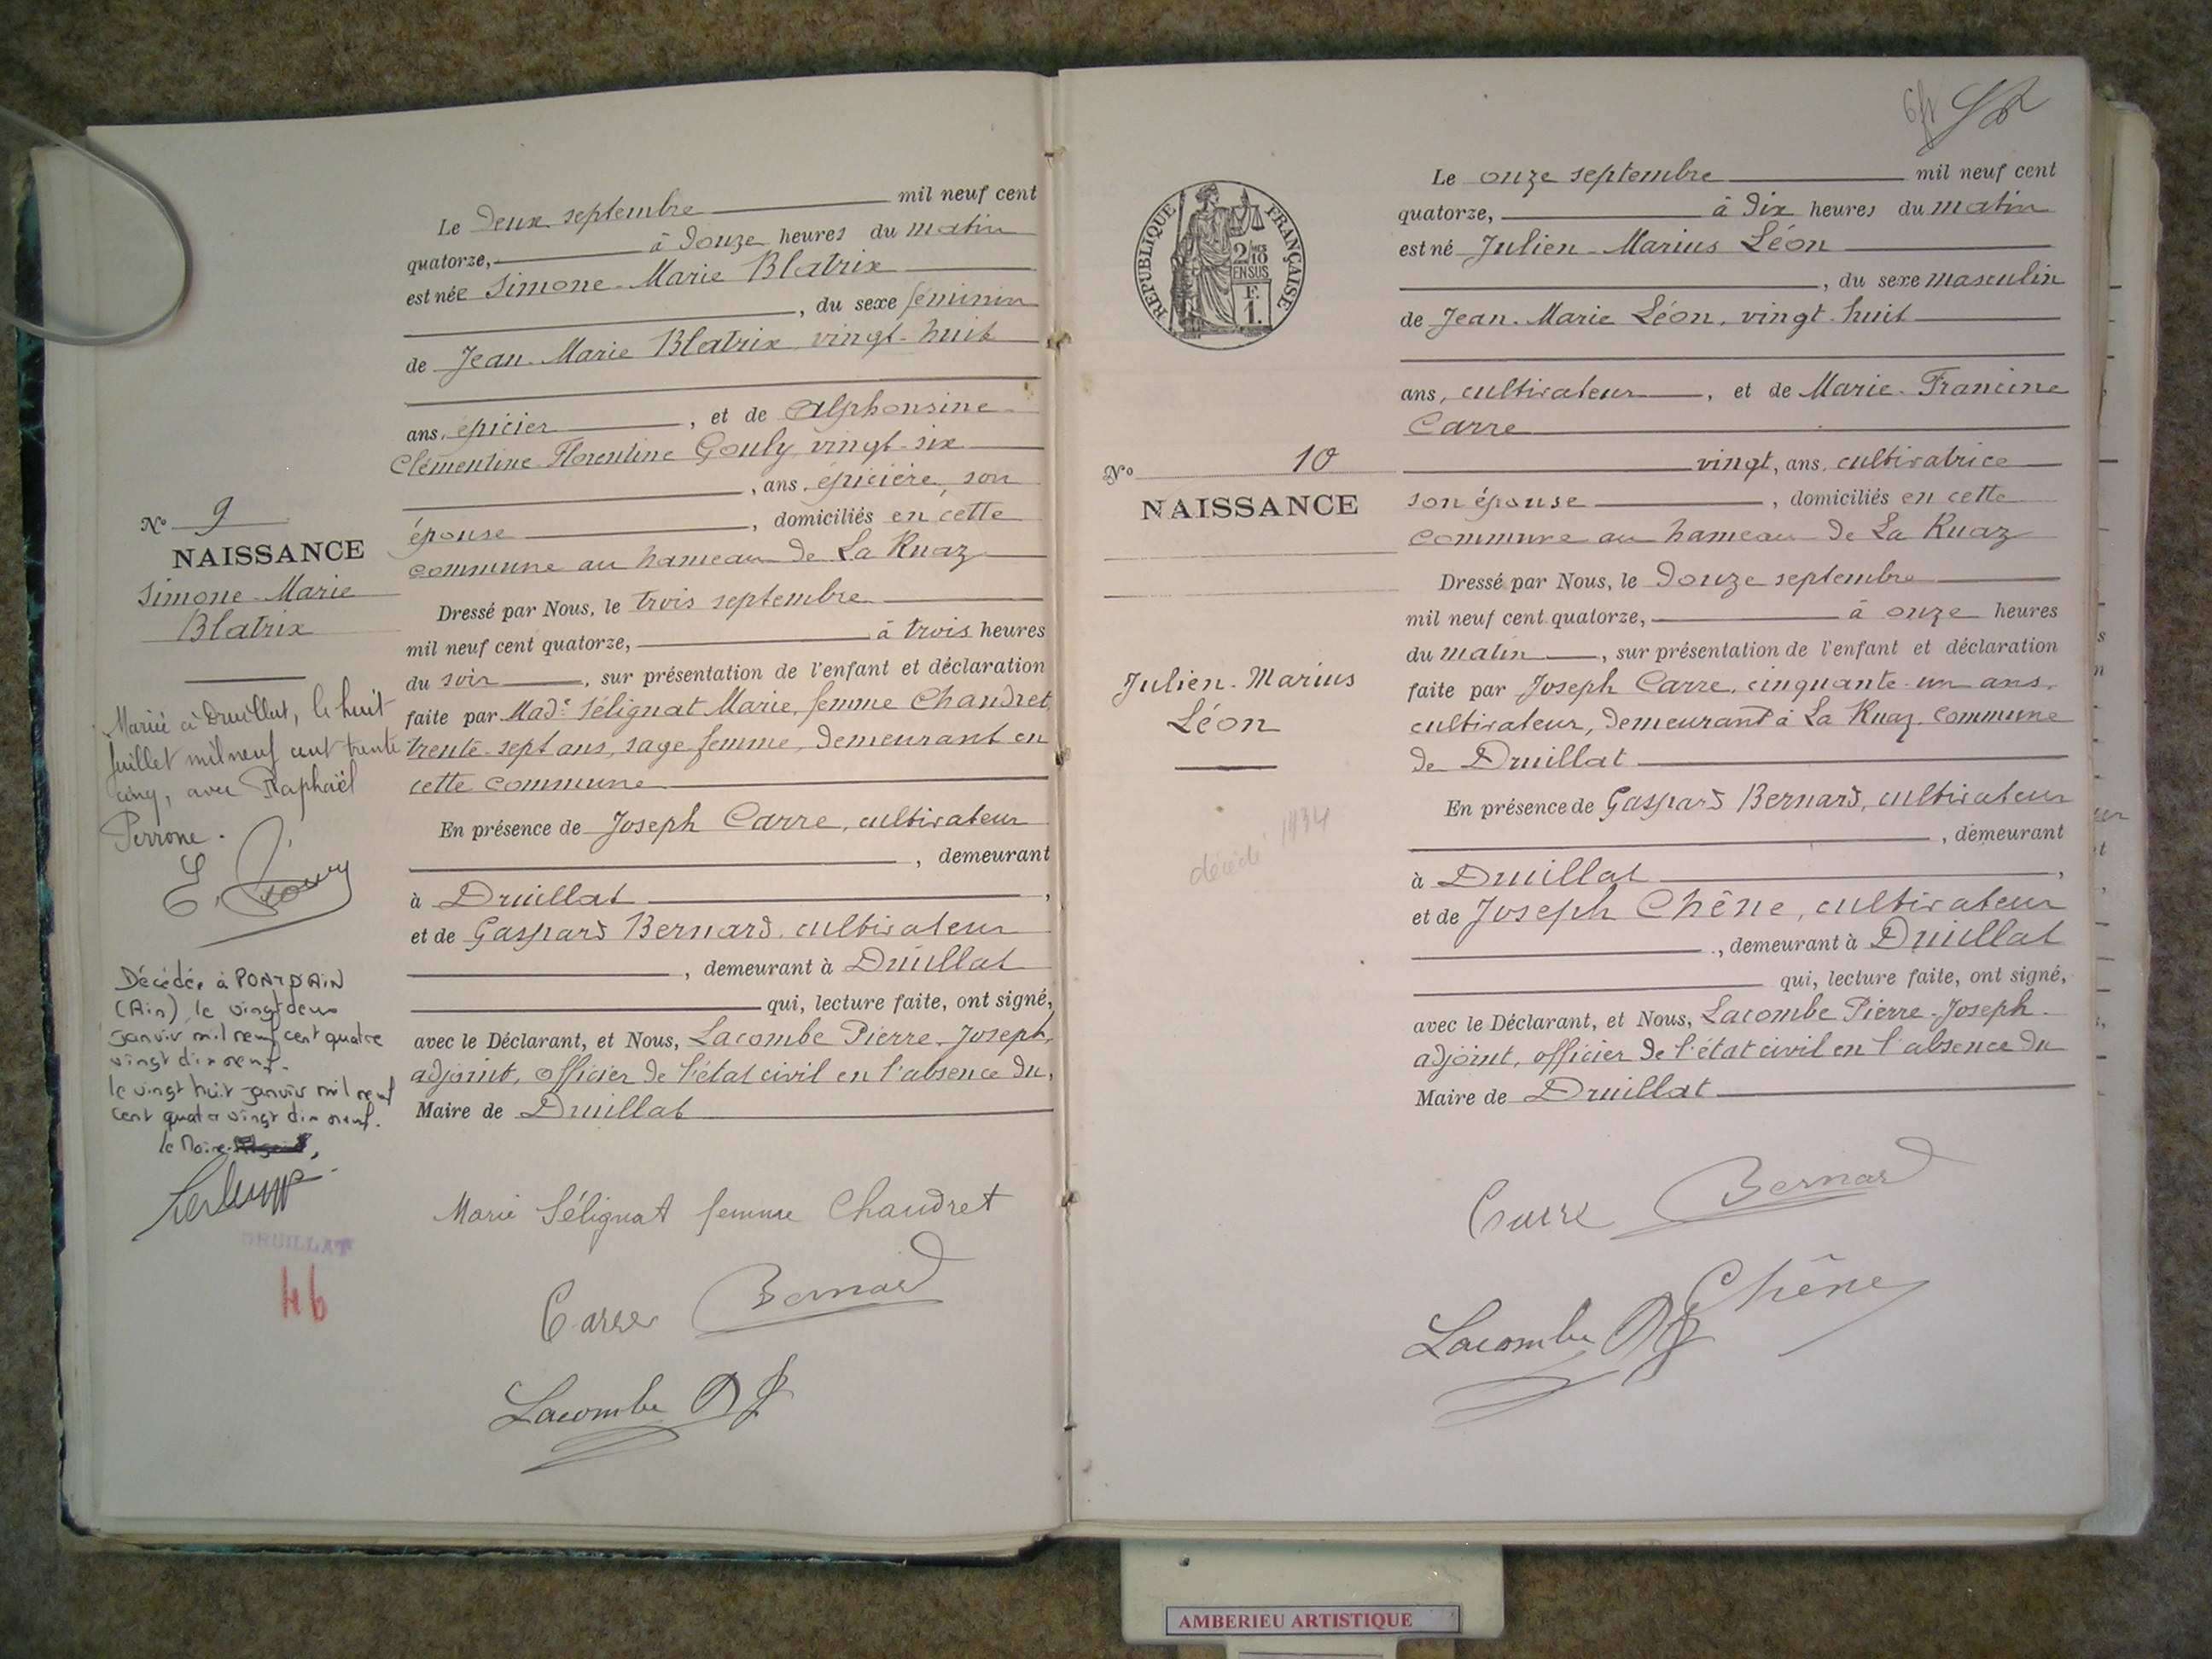 Le deux septembre mil neuf cent
quatorze, à douze heures du matin
est née Simone-Marie Blatrix
, du sexe féminin
de Jean-Marie Blatrix, vingt-huit
ans, épicier, et de Alphonsine
Clémentine Florentine Gouly, vingt-six
, ans, épicière, son
épouse, domiciliés en cette
commune au hameau de La Ruaz
Dressé par Nous, le trois septembre
mil neuf cent quatorze, à trois heures
du soir, sur présentation de l'enfant et déclaration
faite par Made Sélignat Marie, femme Chaudret,
trente-sept ans, sage femme, demeurant en
cette commune
En présence de Joseph Carre, cultivateur
, demeurant
à Druillat,
et de Gaspard Bernard, cultivateur
, demeurant à Druillat
qui, lecture faite, ont signé,
avec le Déclarant, et Nous, Lacombe Pierre-Joseph,
adjoint, officier de l'état civil en l'absence du,
Maire de Druillat
Marie Sélignat femme Chaudret
Carre Bernard
Lacombe
No 9
NAISSANCE
Simone-Marie
Blatrix
Mariée à Druillat, le huit
juillet mil neuf cent trente
cinq, avec Raphaël
Perrone.
Décédée à PONT D'AIN
(Ain), le vingt deux
janvier mil neuf cent quatre
vingt dix neuf.
le vingt huit janvier mil neuf
cent quatre vingt dix neuf.
le Maire
DRUILLAT
46
REPUBLIQUE FRANÇAISE
2/10 EN SUS
F. 1.
No 10
NAISSANCE
Julien-Marius
Léon
décédé 1934
Le onze septembre mil neuf cent
quatorze, à dix heures du matin
est né Julien-Marius Léon
, du sexe masculin
de Jean-Marie Léon, vingt-huit
ans, cultivateur, et de Marie-Francine
Carre
vingt, ans, cultivatrice
son épouse, domiciliés en cette
commune au hameau de La Ruaz
Dressé par Nous, le douze septembre
mil neuf cent quatorze, à onze heures
du matin, sur présentation de l'enfant et déclaration
faite par Joseph Carre, cinquante-un ans,
cultivateur, demeurant à La Ruaz, commune
de Druillat
En présence de Gaspard Bernard, cultivateur
, demeurant
à Druillat,
et de Joseph Chêne, cultivateur
, demeurant à Druillat
qui, lecture faite, ont signé,
avec le Déclarant, et Nous, Lacombe Pierre-Joseph
adjoint, officier de l'état civil en l'absence du
Maire de Druillat
Carre Bernard
Chêne
Lacombe
AMBERIEU ARTISTIQUE